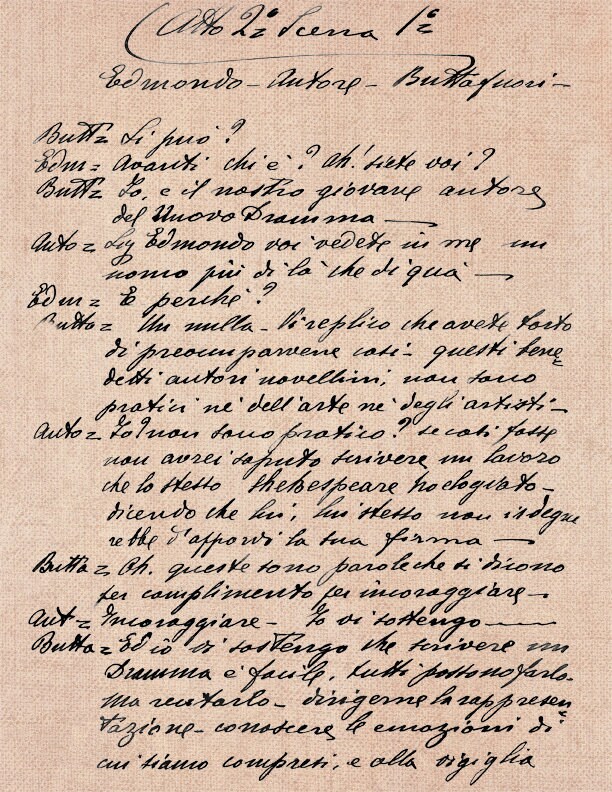 Atto 2º Scena 1ª
Edmondo - Autore - Buttafuori -
Butt= Si può?
Edm= Avanti chi è? Ah! siete voi?
Butt= Io, e il nostro giovane autore
del Nuovo Dramma —
Auto= Sig Edmondo voi vedete in me un
uomo più di là che di qua —
Edm= E perché?
Butta= Un nulla - Vi replico che avete torto
di preocuparvene così - questi bene
detti autori novellini; non sono
pratici né dell'arte né degli artisti -
Auto= Io? non sono pratico? se così fosse
non avrei saputo scrivere un lavoro
che lo stesso Shekespeare ha elogiato -
dicendo che lui, lui stesso non isdegne
rebbe d'apporvi la sua firma —
Butta= Oh. queste sono parole che si dicono
per complimento per incoraggiare -
Aut= Incoraggiare - Io vi sostengo —
Butta= Ed io vi sostengo che scrivere un
Dramma è facile, tutti possono farlo -
ma recitarlo - dirigerne la rappresen
tazione - conoscere le emozioni di
cui siamo compresi, e alla vigiglia